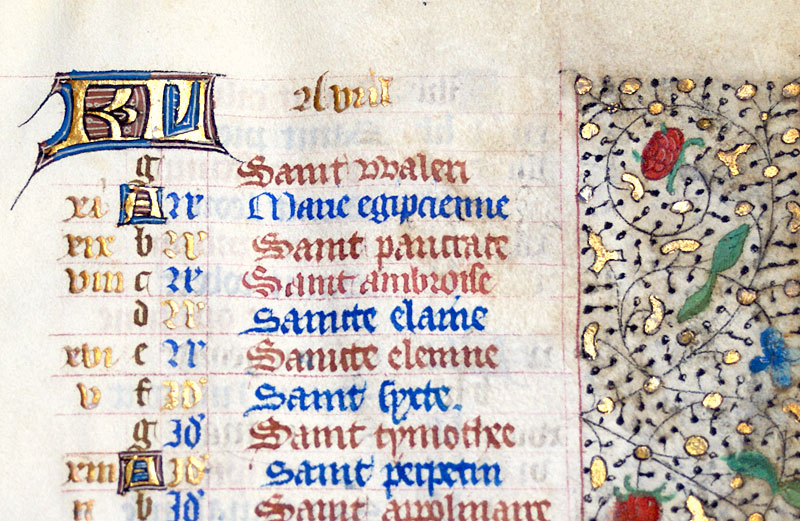 KL Apuril
g Saint Waleri
xi A N' Marie egipcienne
xix b N' Saint pancrace
viii c N' Saint ambroise
d N' Saincte elaine
xvi e N' Saincte elenne
v f Id' Saint sixte.
g Id' Saint tymothee
xiii A Id' Saint perpetin
ii b Id' Saint apolinaire